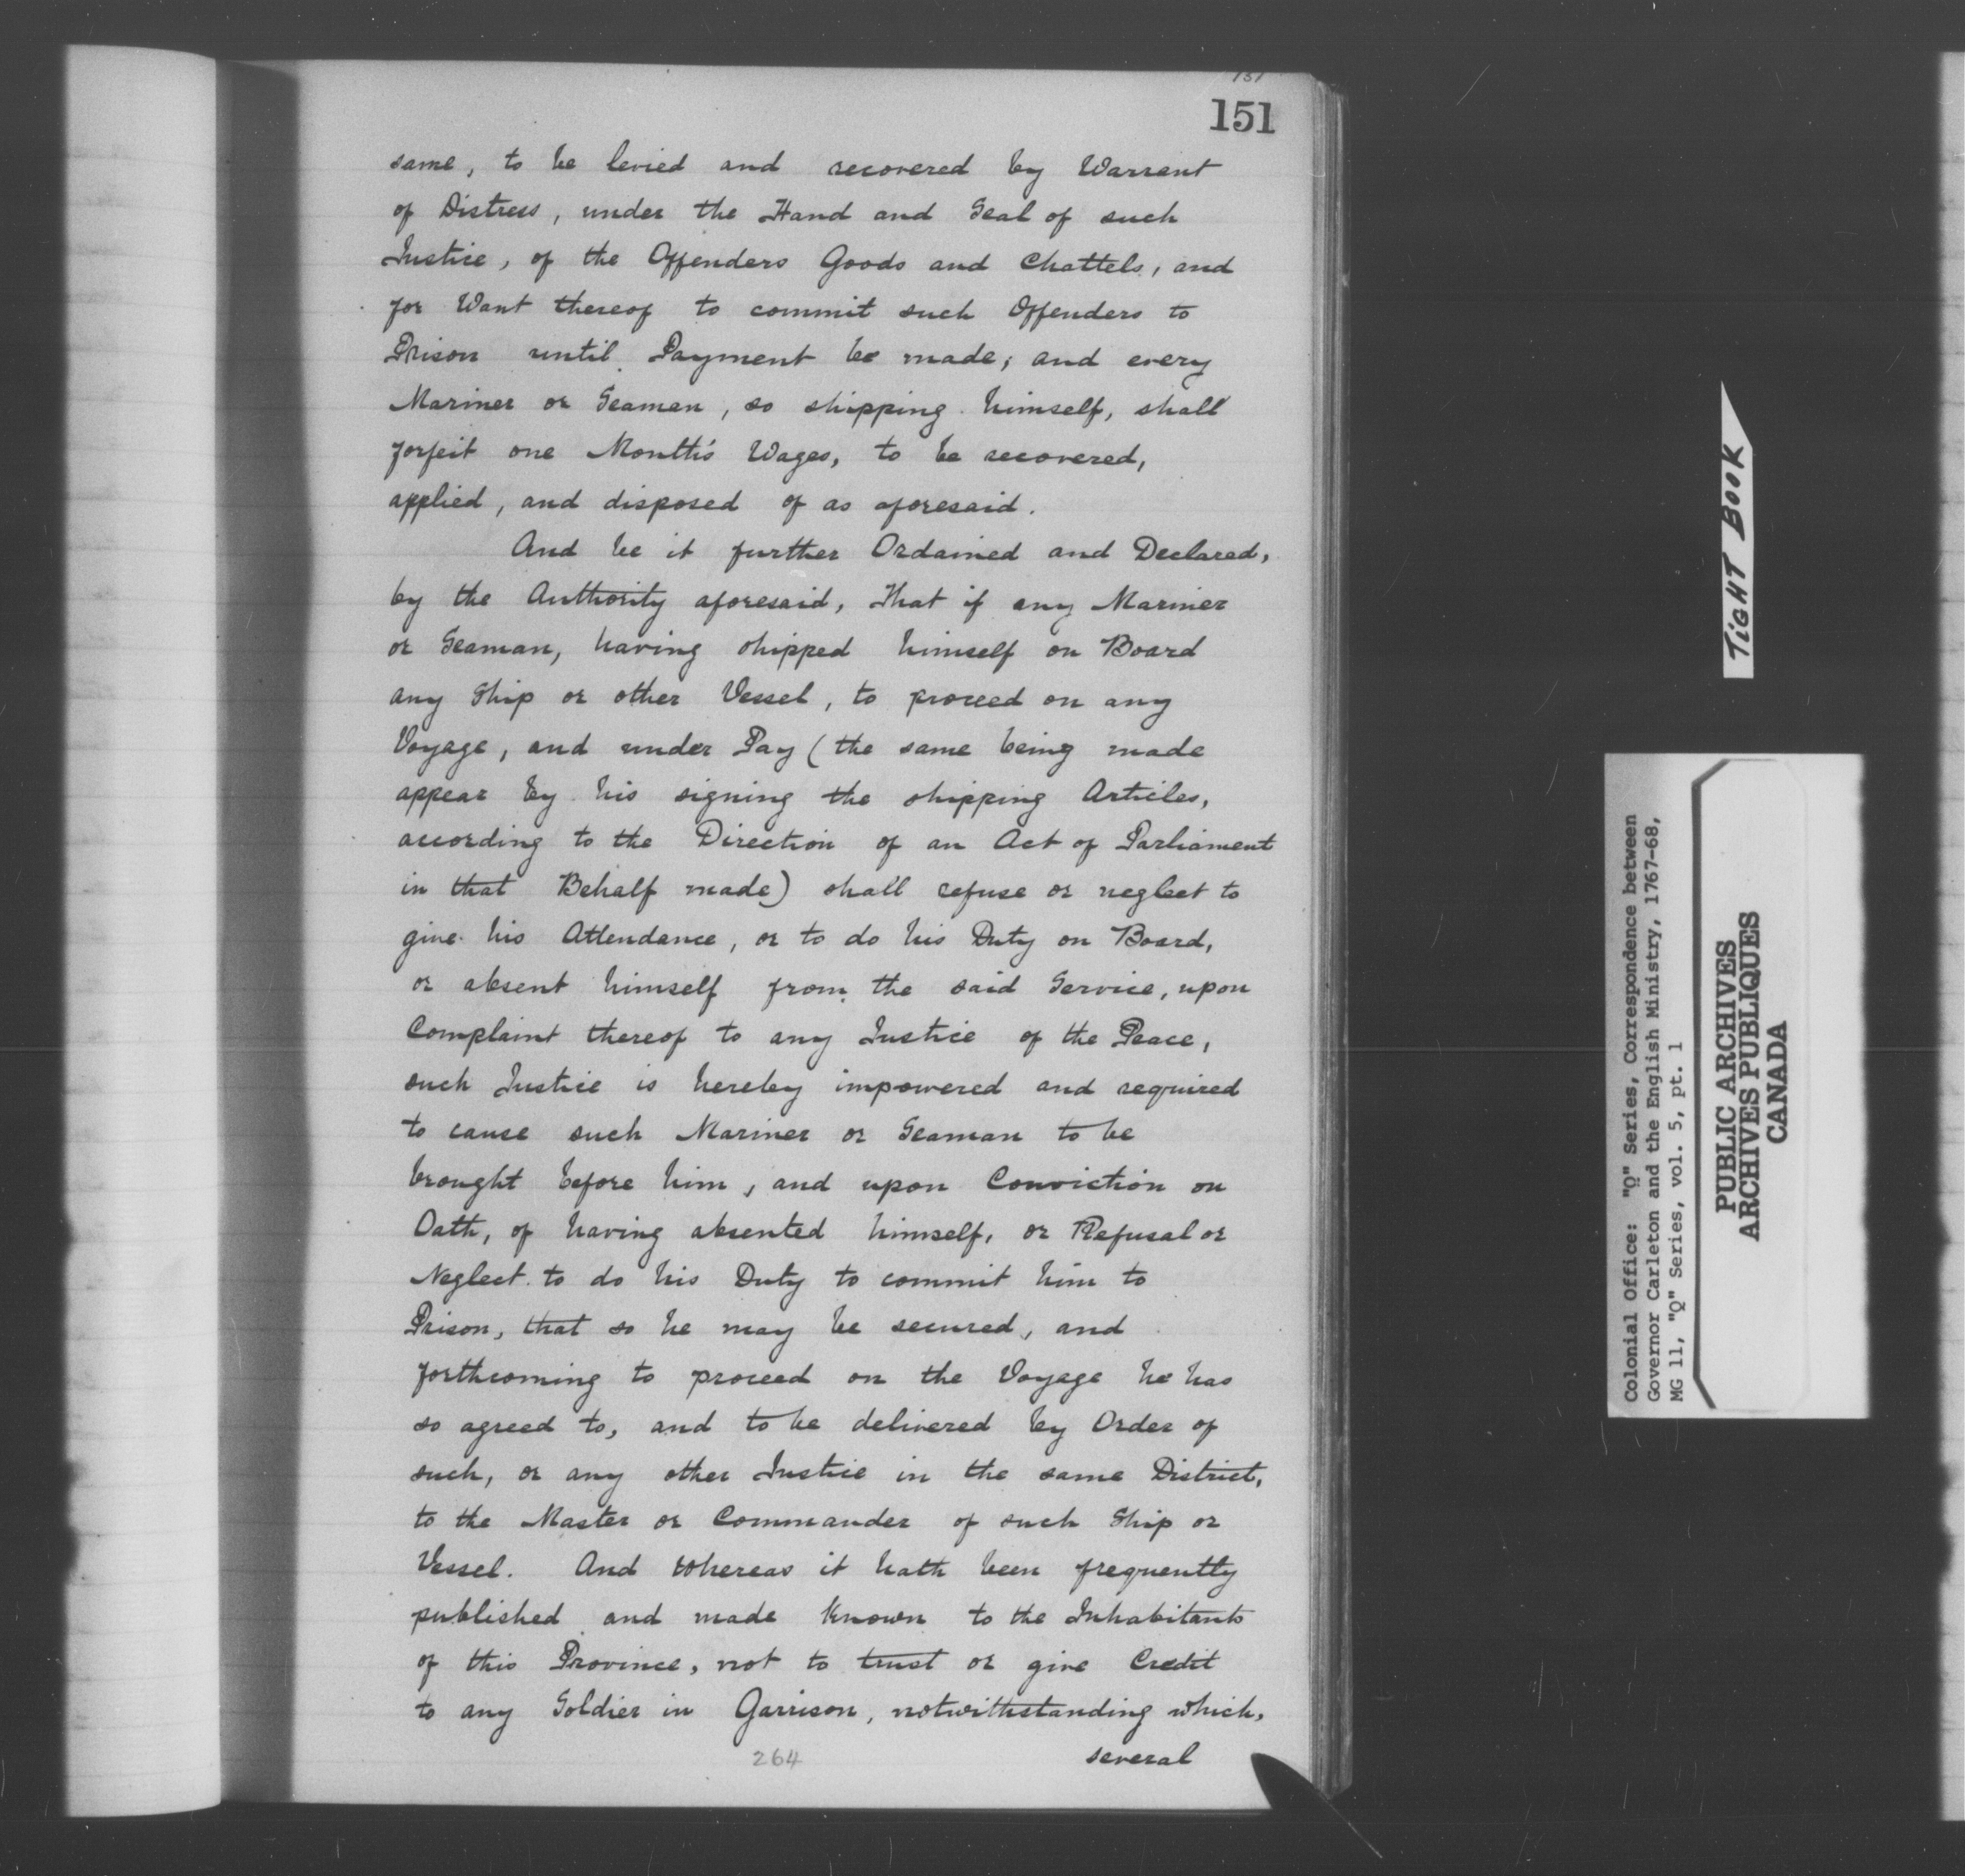 151
151
same, to be levied and recovered by Warrant
of Distress, under the Hand and Seal of such
Justice, of the Offenders Goods and Chattels, and
for Want thereof to commit such Offenders to
Prison until Payment be made; and every
Mariner or Seaman, so shipping himself, shall
forfeit one Month's Wages, to be recovered,
applied, and disposed of as aforesaid.
And be it further Ordained and Declared,
by the Authority aforesaid, That if any Mariner
or Seaman, having shipped himself on Board
any Ship or other Vessel, to proceed on any
Voyage, and under Pay (the same being made
appear by his signing the shipping Articles,
according to the Direction of an Act of Parliament
in that Behalf made) shall refuse or neglect to
give his Attendance, or to do his Duty on Board,
or absent himself from the said Service, upon
Complaint thereof to any Justice of the Peace,
such Justice is hereby impowered and required
to cause such Mariner or Seaman to be
brought before him, and upon Conviction on
Oath, of having absented himself, or Refusal or
Neglect to do his Duty to commit him to
Prison, that so he may be secured, and
forthcoming to proceed on the Voyage he has
so agreed to, and to be delivered by Order of
such, or any other Justice in the same District,
to the Master or Commander of such Ship or
Vessel. And Whereas it hath been frequently
published and made Known to the Inhabitants
of this Province, not to trust or give Credit
to any Soldier in Garrison, notwithstanding which,
several
264
TiGHT BOOK
Colonial Office: "Q" Series, Correspondence between
Governor Carleton and the English Ministry, 1767-68,
MG 11, "Q" Series, vol. 5, pt. 1
PUBLIC ARCHIVES
ARCHIVES PUBLIQUES
CANADA